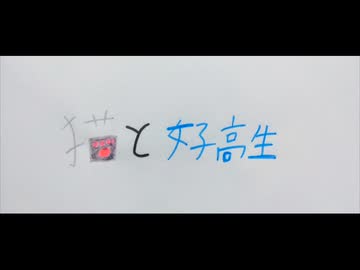 猫と女子高生